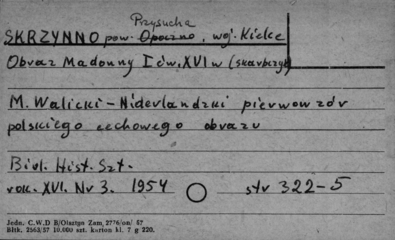 Przysucha
SKRZYNNO pow. Opoczno, woj. Kielce
Obraz Madonny I ćw. XVI w (skarbczyk)
M. Walicki - Niderlandzki pierwowzór
polskiego cechowego obrazu
Biul. Hist. Szt.
rok. XVI. Nr 3. 1954 str 322-5
Jedn. C.W.D B/Olsztyn Zam. 2776/on/ 57
Bltk. 2563/57 10.000 szt. karton kl. 7 g 220.